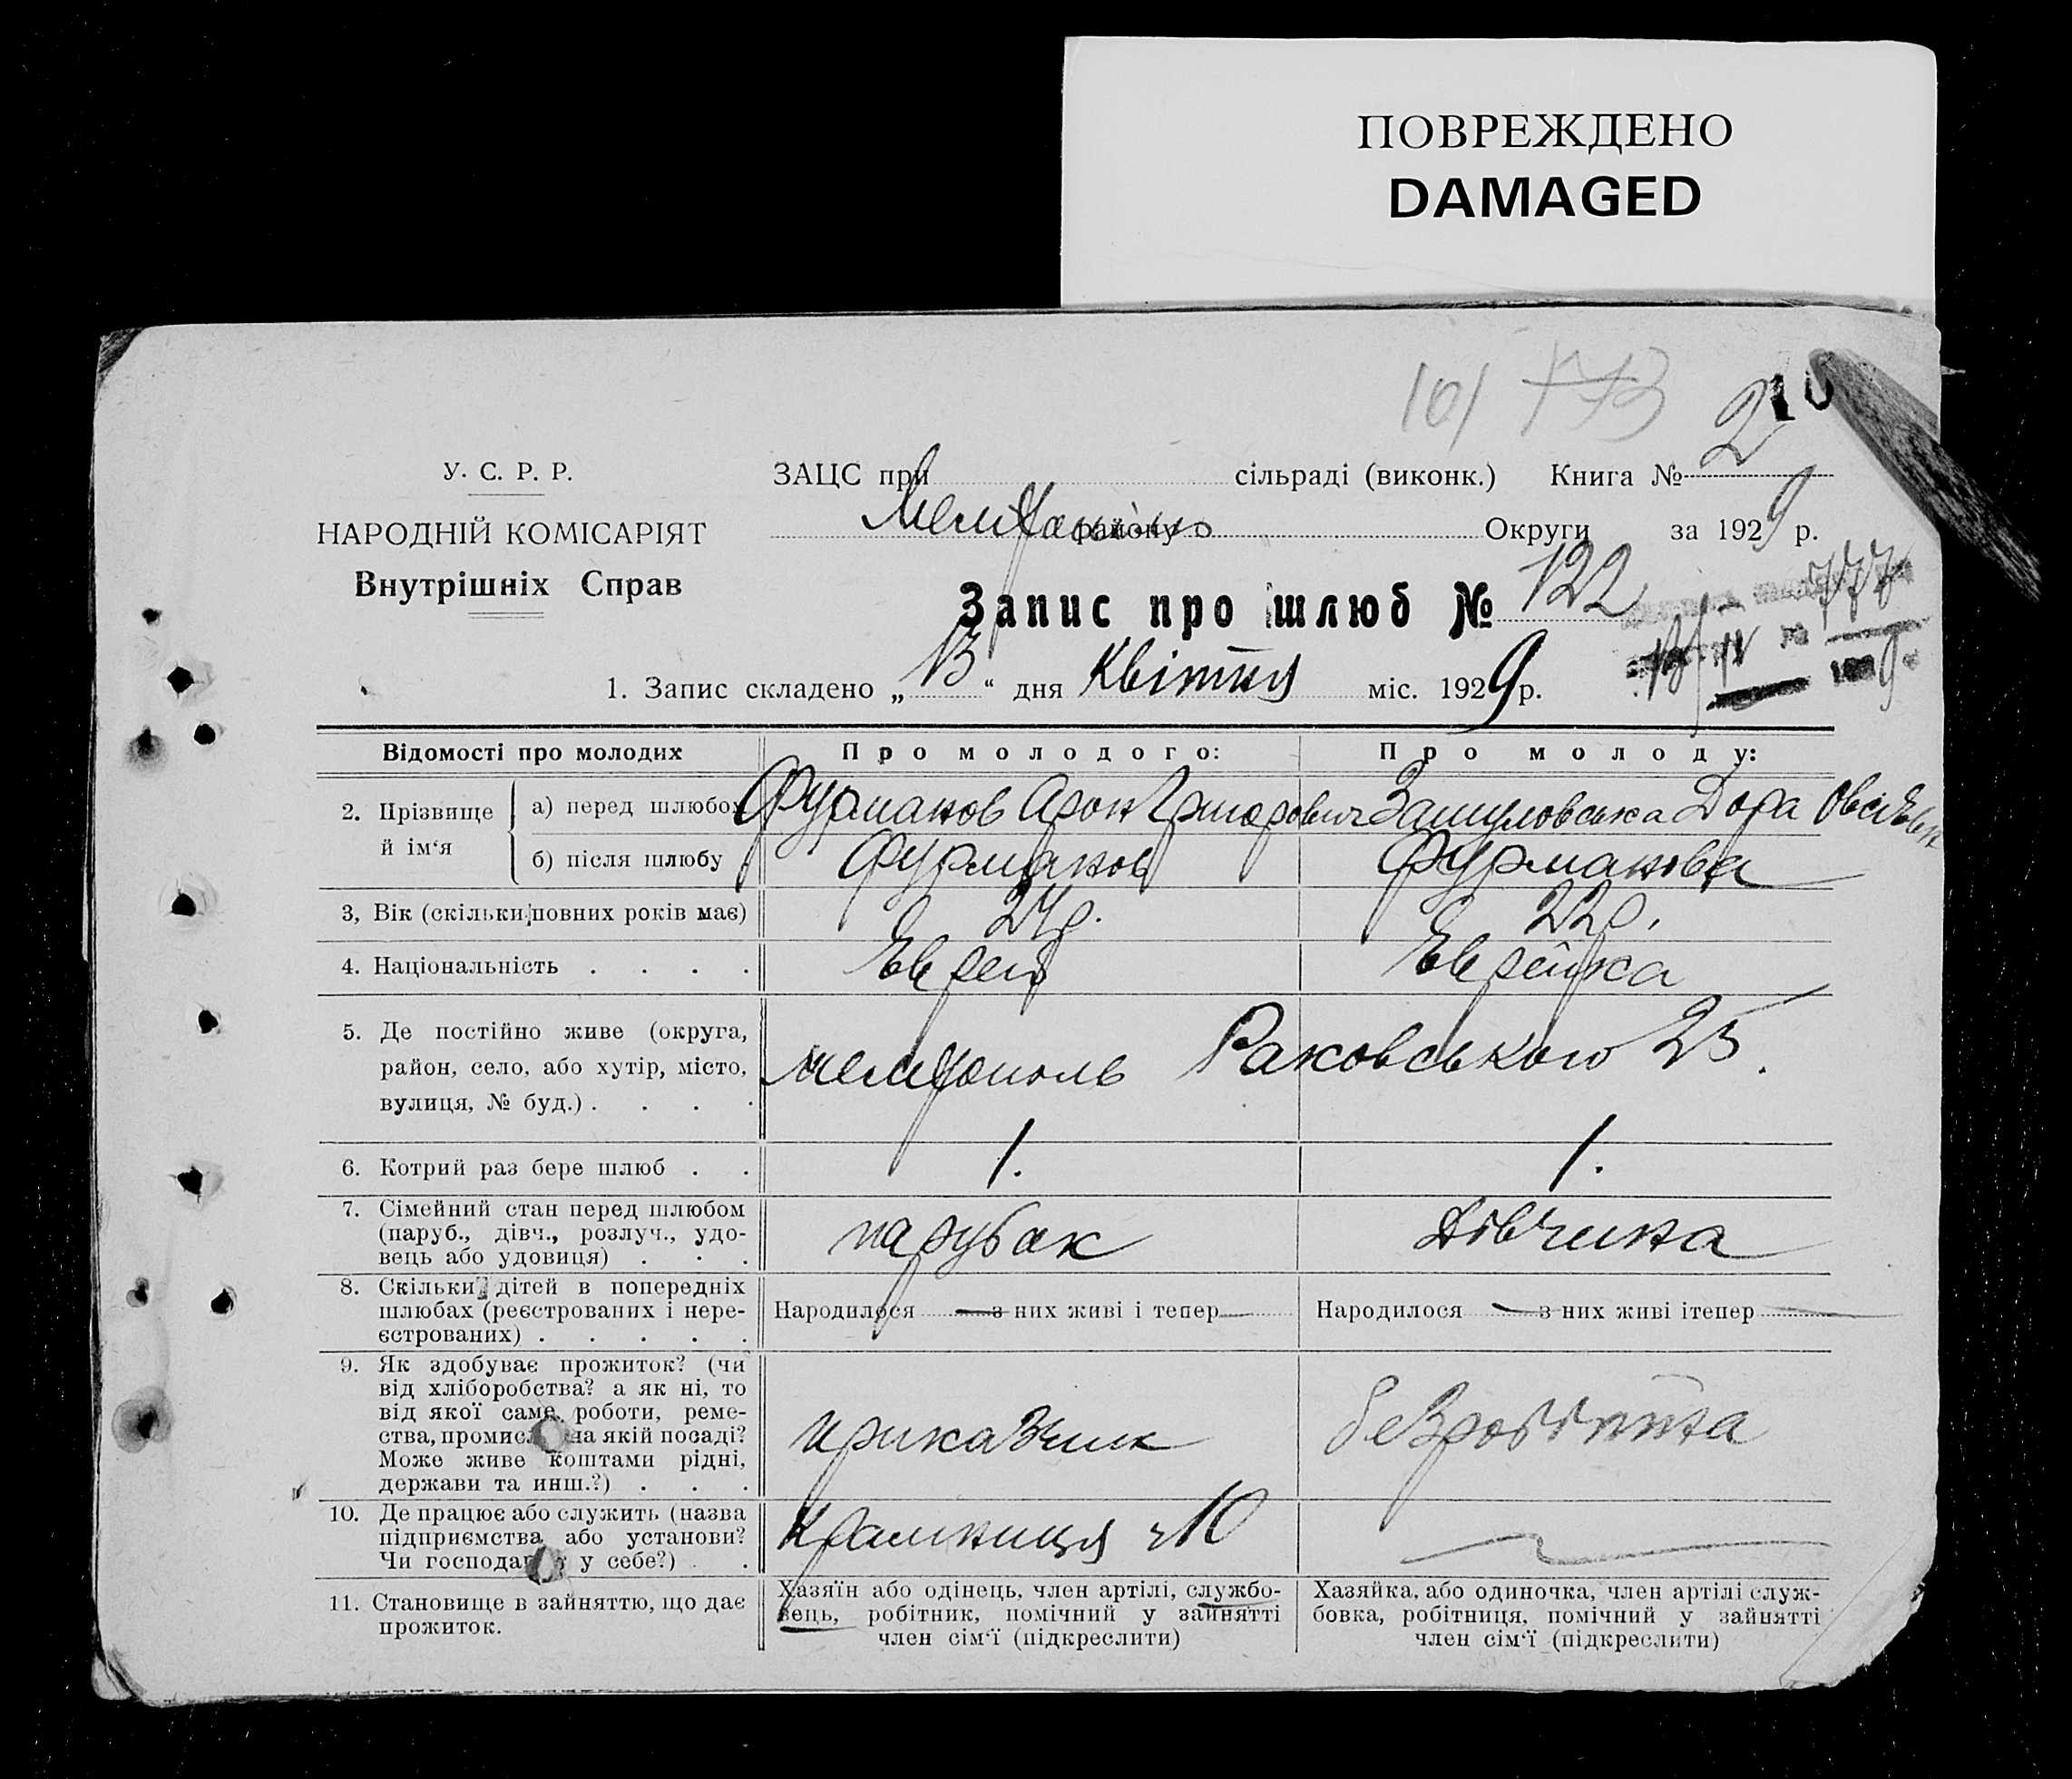 ПОВРЕЖДЕНО
DAMAGED
101 173
210
У. С. Р. Р.
НАРОДНІЙ КОМІСАРІЯТ
Внутрішніх Справ
ЗАЦС при сільраді (виконк.) Книга №
району Округи за 1929 р.
Запис про шлюб № 122
777
13/IV 9
1. Запис складено „13“ дня Квітня міс. 1929 р.
Відомості про молодих
Про молодого:
Про молоду:
2. Прізвище й ім‘я
а) перед шлюбом
Фурманов Арон Григорович
Дора
б) після шлюбу
Фурманов
Фурманова
3, Вік (скільки повних років має)
24 р.
22 р.
4. Національність . . . .
Еврей
Еврейка
5. Де постійно живе (округа,
район, село, або хутір, місто,
вулиця, № буд.) . . . .
Мелітополь Раковського 25.
6. Котрий раз бере шлюб . .
1.
1.
7. Сімейний стан перед шлюбом
(паруб., дівч., розлуч., удо-
вець або удовиця) . . .
парубак
дівчина
8. Скільки дітей в попередніх
шлюбах (реєстрованих і нере-
єстрованих) . . . . .
Народилося — з них живі і тепер —
Народилося — з них живі ітепер —
9. Як здобуває прожиток? (чи
від хліборобства? а як ні, то
від якої саме роботи, реме-
ства, промисл на якій посаді?
Може живе коштами рідні,
держави та инш.?) . . .
приказчик
безробітна
10. Де працює або служить (назва
підприємства або установи?
Чи господар у себе?) . .
Крамниця ч 10
11. Становище в зайняттю, що дає
прожиток.
Хазяїн або одінець, член артілі, службо-
вець, робітник, помічний у зайнятті
член сім‘ї (підкреслити)
Хазяйка, або одиночка, член артілі служ-
бовка, робітниця, помічний у зайнятті
член сім‘ї (підкреслити)